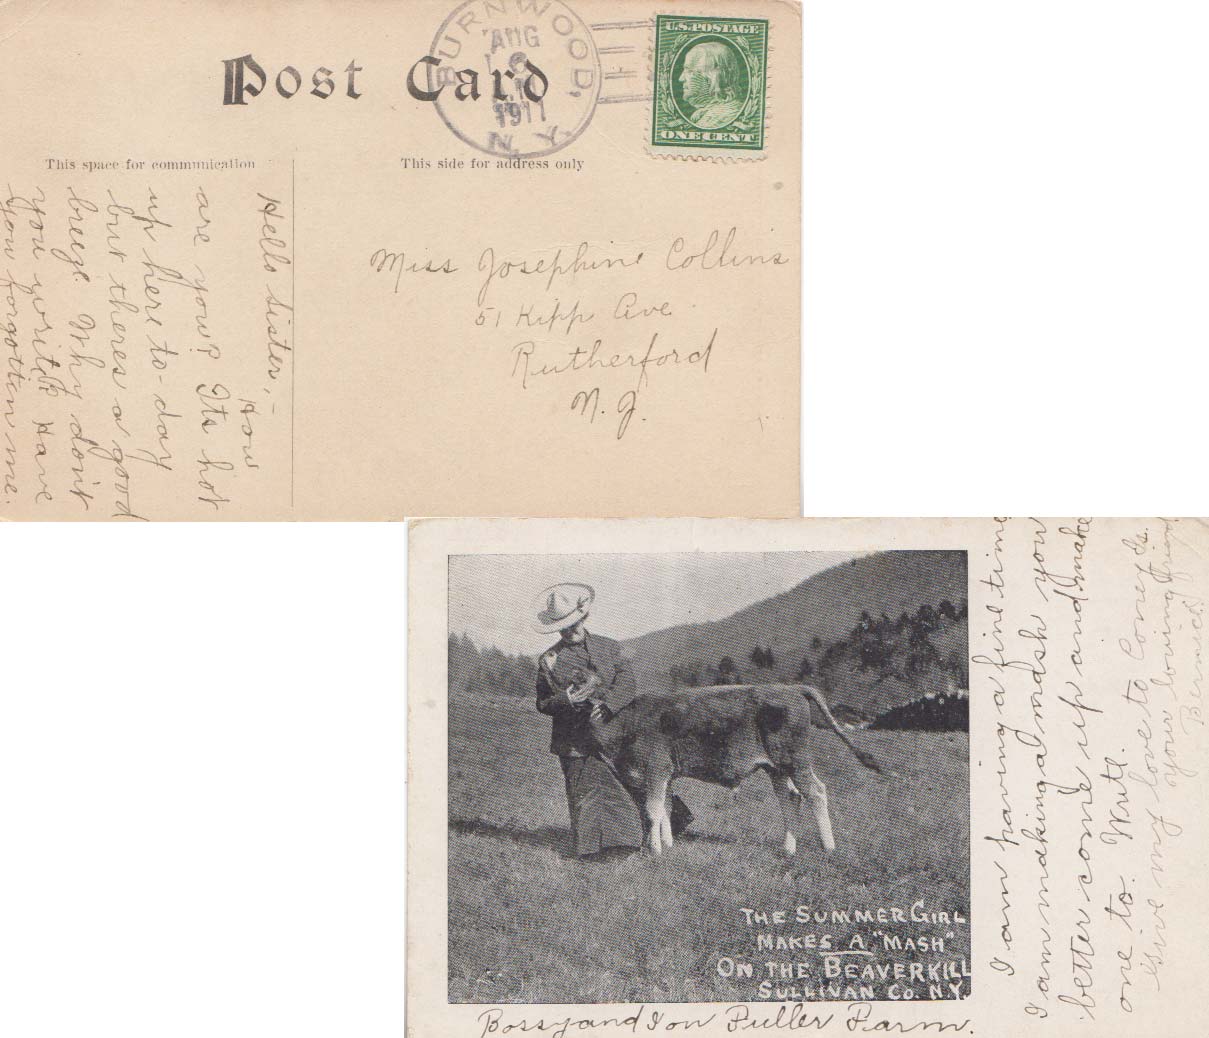 Post Card
BURNWOOD,
AUG
1911
N. Y.
U.S. POSTAGE
ONE CENT
This space for communication
This side for address only
Hello Sister,-
How
are you? Its hot
up here to-day
but theres a good
breeze. Why don't
you write? Have
you forgotten me.
Miss Josephine Collins
51 Kipp Ave.
Rutherford
N. J.
THE SUMMER GIRL
MAKES A "MASH"
ON THE BEAVERKILL
SULLIVAN CO. N.Y.
Bossy and I on Fuller Farm.
I am having a fine time
I am making a mash you
better come up and make
one to. Write.
Give my love to Coney Is.
your loving friend
Bernice